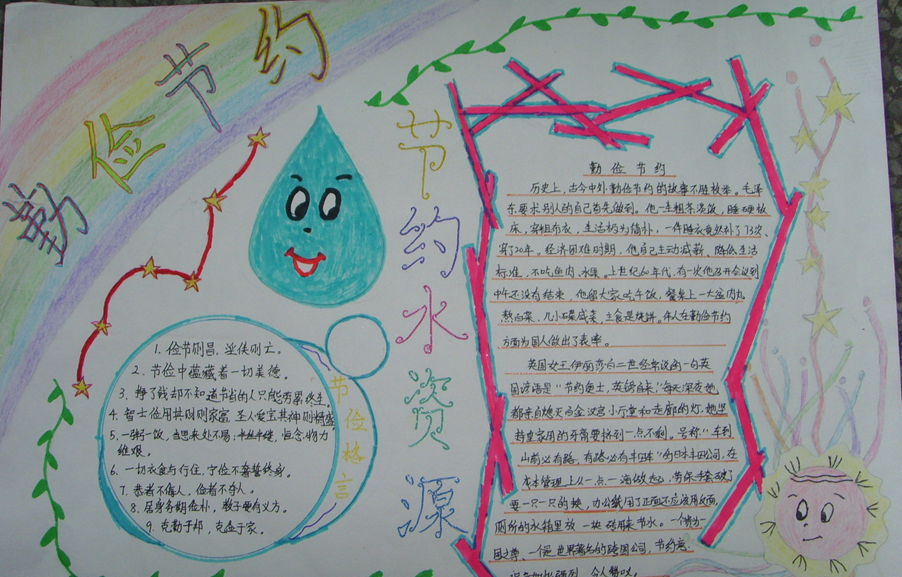 勤俭节约
节约水资源
节俭格言
1. 俭节则昌，淫佚则亡。
2. 节俭中蕴藏着一切美德。
3. 挣了钱却不知道节省的人只能劳累终生。
4. 智士俭用其财则家富 圣人爱宝其神则精盛
5. 一粥一饭，当思来处不易；半丝半缕，恒念物力
维艰。
6. 一切衣食与行住，宁俭不奢誓终身。
7. 恭者不侮人，俭者不夺人。
8. 居身务期俭朴，教子要有义方。
9. 克勤于邦，克俭于家。
勤俭节约
历史上，古今中外勤俭节约的故事不胜枚举。毛泽
东要求别人的自己首先做到。他一生粗茶淡饭，睡硬板
床，穿粗布衣，生活极为简朴，一件睡衣竟然补了73次、
穿了20年。经济困难时期，他自己主动减薪、降低生活
标准，不吃鱼肉、水果。上世纪60年代，有一次他召开会议到
中午还没有结束，他留大家吃午饭，餐桌上一大盆肉丸
熬白菜、几小碟咸菜，主食是烧饼。伟人在勤俭节约
方面为国人做出了表率。
英国女王伊丽莎白二世经常说的一句英
国谚语是“节约便士，英镑自来”，每天深夜她
都亲自熄灭白金汉宫小厅堂和走廊的灯，她坚
持皇家用的牙膏要挤到一点不剩。号称“车到
山前必有路，有路必有丰田车”的日本丰田公司，在
成本管理上从一点一滴做起，劳保手套破了
要一只一只的换，办公纸用了正面还应该用反面，
厕所的水箱里放一块砖用来节水。一个贵为一
国之尊、一个是世界著名的跨国公司，节约意